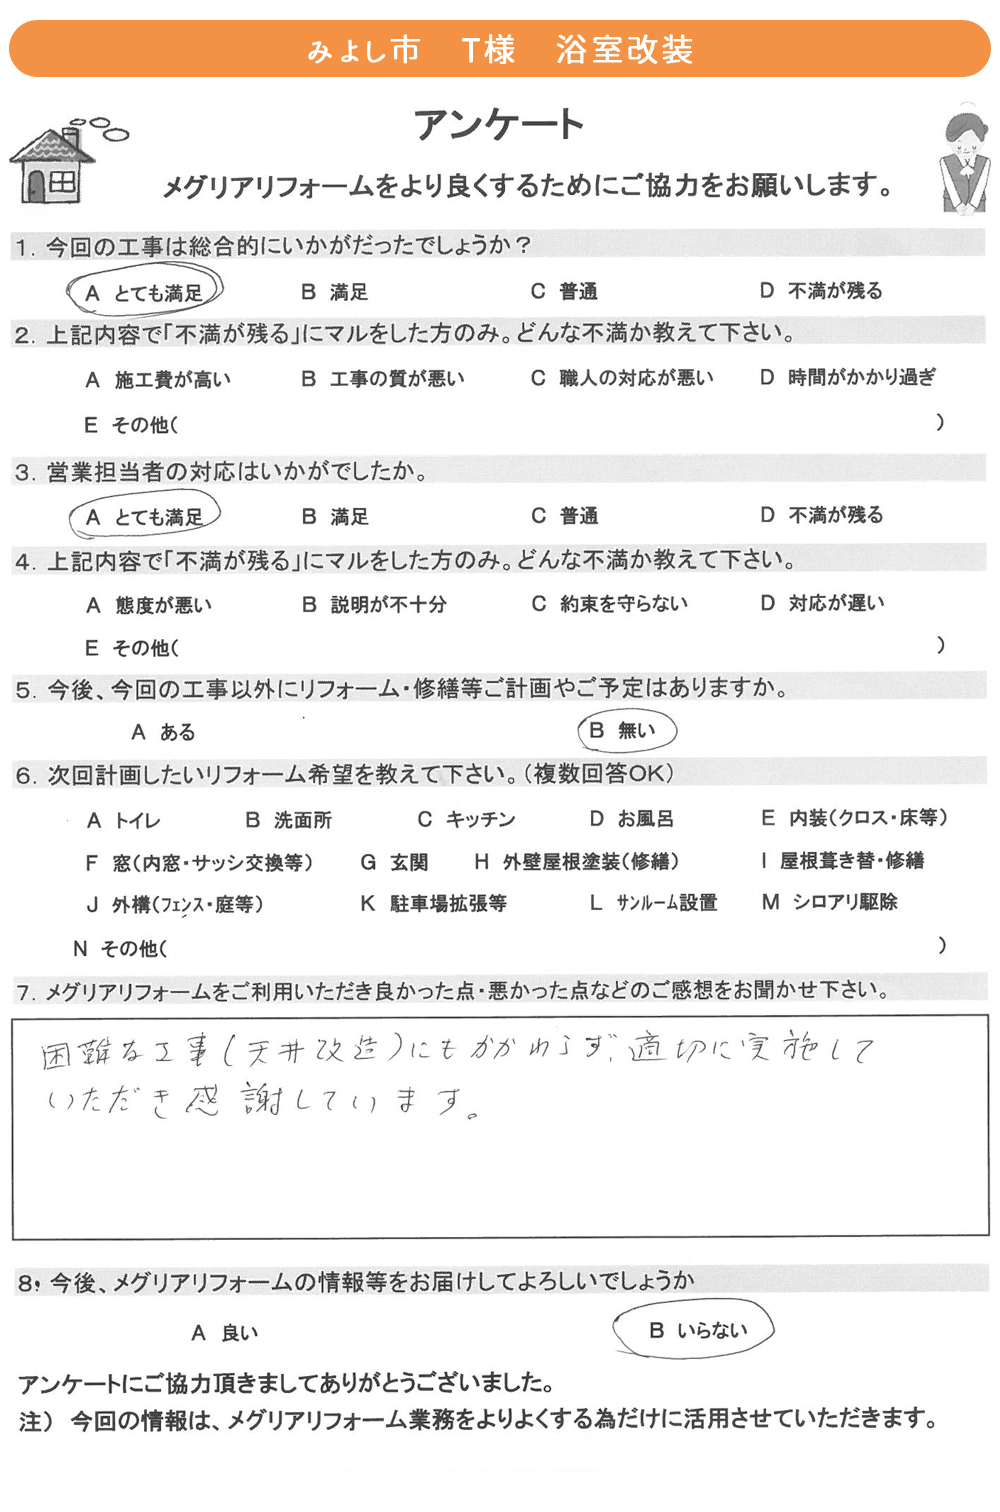 みよし市　T様　浴室改装
アンケート
メグリアリフォームをより良くするためにご協力をお願いします。
1. 今回の工事は総合的にいかがだったでしょうか？
A とても満足 B 満足 C 普通 D 不満が残る
2. 上記内容で「不満が残る」にマルをした方のみ。どんな不満か教えて下さい。
A 施工費が高い B 工事の質が悪い C 職人の対応が悪い D 時間がかかり過ぎ
E その他( )
3. 営業担当者の対応はいかがでしたか。
A とても満足 B 満足 C 普通 D 不満が残る
4. 上記内容で「不満が残る」にマルをした方のみ。どんな不満か教えて下さい。
A 態度が悪い B 説明が不十分 C 約束を守らない D 対応が遅い
E その他( )
5. 今後、今回の工事以外にリフォーム・修繕等ご計画やご予定はありますか。
A ある B 無い
6. 次回計画したいリフォーム希望を教えて下さい。(複数回答OK)
A トイレ B 洗面所 C キッチン D お風呂 E 内装(クロス・床等)
F 窓(内窓・サッシ交換等) G 玄関 H 外壁屋根塗装(修繕) I 屋根葺き替・修繕
J 外構(ﾌｪﾝｽ・庭等) K 駐車場拡張等 L ｻﾝﾙｰﾑ設置 M シロアリ駆除
N その他( )
7. メグリアリフォームをご利用いただき良かった点・悪かった点などのご感想をお聞かせ下さい。
困難な工事(天井改造)にもかかわらず、適切に実施して
いただき感謝しています。
8. 今後、メグリアリフォームの情報等をお届けしてよろしいでしょうか
A 良い B いらない
アンケートにご協力頂きましてありがとうございました。
注） 今回の情報は、メグリアリフォーム業務をよりよくする為だけに活用させていただきます。